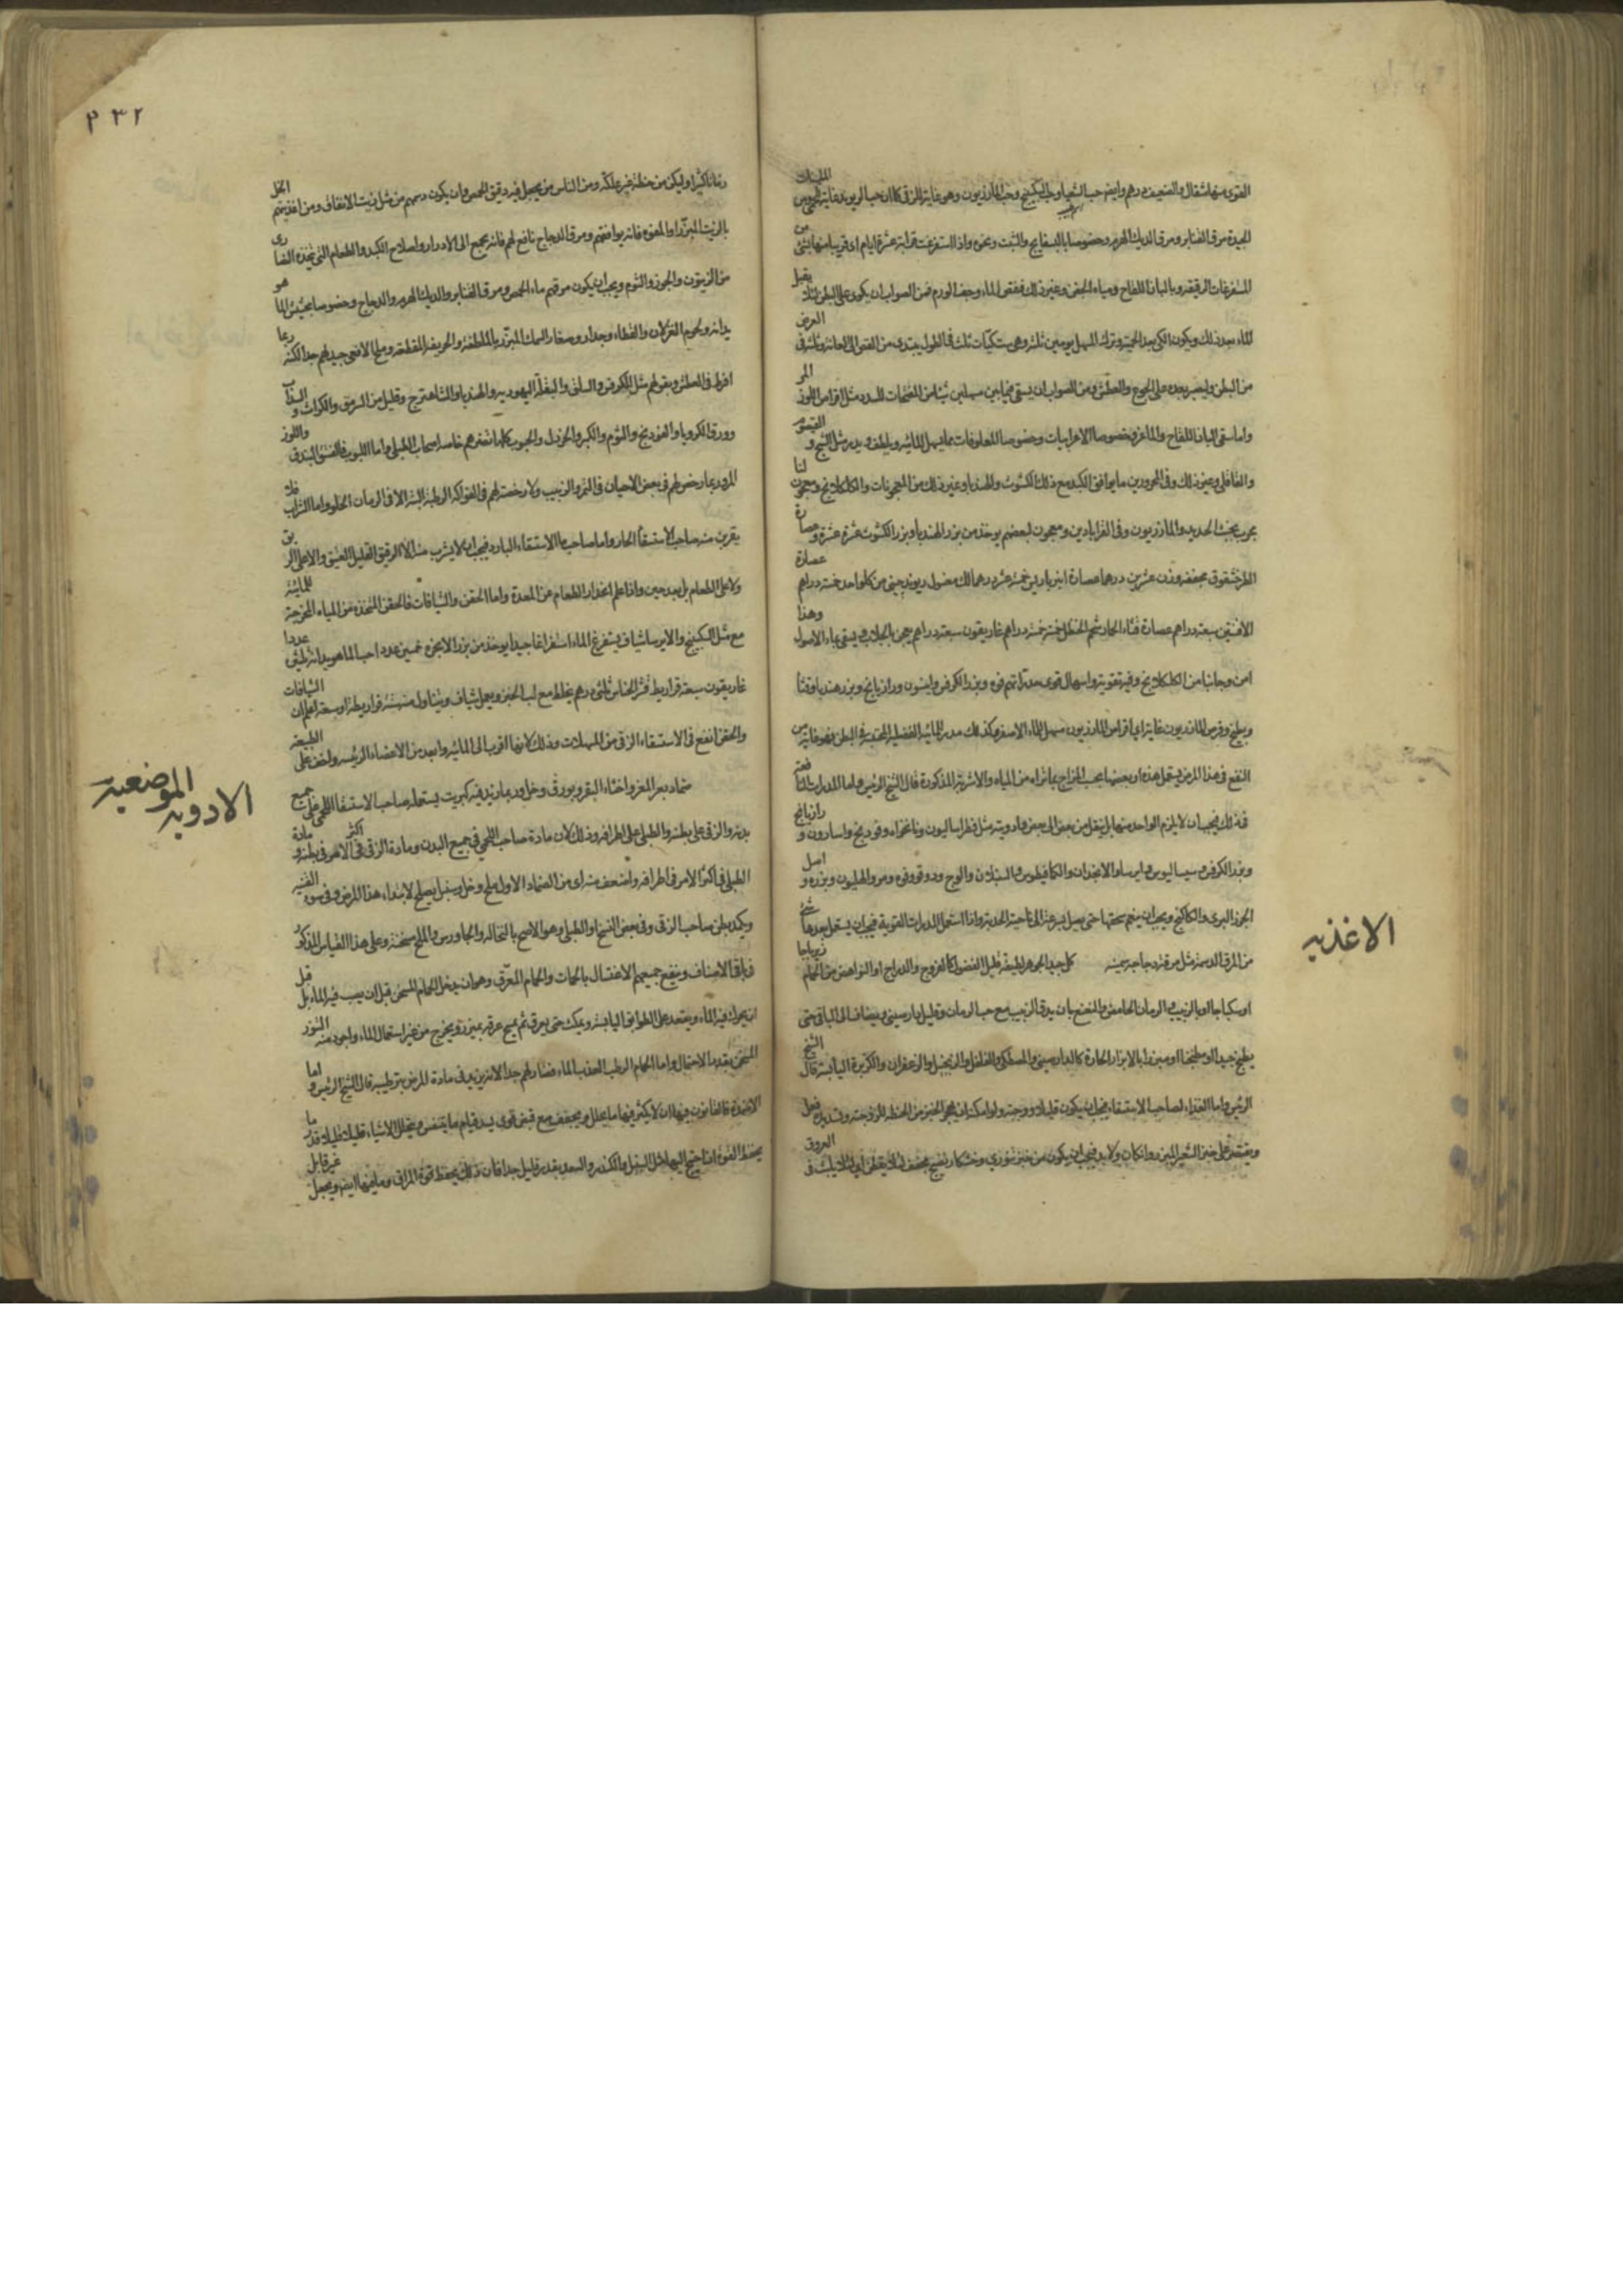 القوى منها مثقال والضعيف درهم وايضا حب الشعيا وحب السكبينج وحب المازريون وهو غاية للزقى كما ان حب الريوند غاية للحمى ومن المليّنات
الجيدة مرق القنابر ومرق الديك الهرم وخصوصا بالبسفايج والشبت ونحوه واذا استفرغت قرابة عشرة ايام اى قريبا منها بشئ من
المستفرغات الرقيقة وبالبان اللقاح ومياه الجبن وغير ذلك فنقص الماء وخف الورم فمن الصواب ان يكوى على البطن لئلا يقبل
الماء بعد ذلك ويكون الكى بعد الحمية وترك المسهل يومين ثلثة وهى ست كيّات ثلث فى الطول يبتدى من القص الى العانة وثلثة فى العرض
من البطن وليصبر بعده على الجوع والعطش ومن الصواب ان يسقى فيما بين مسهلين شيئا من المفتحات للسدد مثل اقراص اللوز المر
واما سقى البان اللقاح والماعز وخصوصا الاعرابيات وخصوصا المعلوفات بما يسهل المائية ويلطف ويدر مثل الشيح و القيصوم
والقاقلى وغير ذلك وفى المحرورين ما يوافق الكبد مع ذلك كالكشوث والهندبا وغير ذلك من المعجونات والكلكلانج ومعجون لنا
مجرب بخبث الحديد والمازريون وفى القرابادين ومعجون لبعضهم يوخذ من بزر الهندبا وبزر الكشوث عشرة عشرة وعصارة
الطرخشقوق مجففة وزن عشرين درهما عصارة انبرباريس خمسة عشر درهما لك مغسول ريوند چينى من كل واحد خمسة دراهم عصارة
الافسنتين سبعة دراهم عصارة قثاء الحمار شحم الحنظل خمسة خمسة دراهم غاريقون سبعة دراهم يعجن بالجلاب ويسقى بماء الاصول وهذا
امن وجانبا من الكلكلانج وفيه تقوية واسهال قوى
ويطبخ وقرص المازريون غاية اى اقراص المازريون مسهل للماء الاصفر وكذلك مدر للمائية الفضلية المحتبسة فى البطن فهو غاية من
النفع فى هذا المرض يستعمل هذه او بعضها بحسب المزاج بما تراه من المياه والاشربة المذكورة قال الشيخ الرئيس واما المدرات النافعة
فى ذلك فيجب ان لا يلزم الواحد منها بل ينقل من بعض الى بعض وادويته مثل فطراساليون ونانخواه وفودنج واسارون و رازيانج
وبزر الكرفس وسيساليوس وايرسا والانجدان والكمافيطوس والسنبلان والوج ودوقو وفوه ومر والهليون وبزره و اصل
الجزر البرى والكاكنج ويجب ان ينعم سحقها حتى يصل بسرعة الى ناحية الحدبة واذا استعمل المدرات القوية فيجب ان يستعمل بعدها شئ
من المرق الدسمة مثل مرقة دجاجة سمينة كل جيد الجوهر لطيفه قليل الفضول كالفروج والدراج او النواهض من الحمام زيرباجا
او سكباجا او بالزبيب والرمان الحامض والنعنع بان يدق الزبيب مع حب الرمان وقليل دارصينى ويضاف الى الباقى حتى
يطبخ جيدا او مطجنا او مبزرا بالابزار الحارة كالدارصينى والمصطكى والفلفل والزنجبيل والزعفران والكزبرة اليابسة قال الشيخ
الرئيس واما الغذاء لصاحب الاستسقاء فيجب ان يكون قليلا ووجبة ولو امكن ان يهجر الخبز من الحنطة للزوجته وتسديده فعل
ويقتصر على خبز الشعير المبزر وان كان ولا بد فيجب ان يكون من خبز تنورى وخشكار نضيج مجفف
العروق
الاغذيه
٢٣٢
زمانا كثيرا وليكن من حنطة غير علكة ومن الناس من يجعل فيه دقيق الحمص وان يكون دسمهم من مثل زيت الانفاق ومن اغذيتهم الخل
بالزيت المبزّر او المفوه فانه يوافقهم ومرق الدجاج نافع لهم فانه يجمع الى الادرار واصلاح الكبد والطعام الذى يتخذه النصارى
من الزيتون والجزر والثوم ويجب ان يكون مرقهم ماء الحمص ومرق القنابر والديك الهرم والدجاج وخصوصا
ولحوم الغزلان والقطاء وجدا وصغار السمك المبزّر بالملطفة والحريفة المقطعة ولحم الافعى جيد لهم جدا لكنه ربما
افرط فى العطش وبقولهم مثل الكرفس والسلق والبقلة اليهودية والهندباء والشاهترج وقليل من السرمق والكراث و السذاب
وورق الكرويا والفودنج والثوم والكبر والخردل والحبوب كلها تضرهم خاصة اصحاب الطبلى واما اللبوب فالفستق والبندق واللوز
المر وربما رخص لهم فى بعض الاحيان فى التمر والزبيب ولا رخصة لهم فى الفواكه الرطبة البتة الا فى الرمان الحلو واما الشراب فلا
يقربن منه صاحب الاستسقاء الحار واما صاحب الاستسقاء البارد فيجب ان لا يشرب منه الا الرقيق القليل العتيق ولا على الريق
ولا على الطعام بل بعد حين واذا علم انحدار الطعام عن المعدة واما الحقن والشيافات فالحقن المتخذة من المياه المخرجة للمائية
مع مثل السكبينج والايرسا شياف يستفرغ الماء استفراغا جيدا يوخذ من بزر الانجره خمسين عددا حب الماهوبدانه ثلثين عددا
غاريقون سبعة قراريط قشر النحاس ثلثى درهم يخلط مع لب الخبز ويعمل شياف ويتناول منه ستة قراريط او سبعة اعلم ان الشيافات
والحقن انفع فى الاستسقاء الزقى من المسهلات وذلك لانها اقرب الى المائية وابعد من الاعضاء الرئيسة واخف على الطبيعة
ضماد بعر المعز واخثاء البقر وبورق وخل وربما زيد فيه كبريت يستعمله صاحب الاستسقاء اللحمى على جميع
بدنه والزقى على بطنه والطبلى على اطرافه وذلك لان مادة صاحب اللحمى فى جميع البدن ومادة الزقى فى اكثر الامر فى بطنه و مادة
الطبلى فى اكثر الامر فى اطرافه واضعف منه اى من الضماد الاول ملح وخل وسنبل يصلح لابتداء هذا المرض وفى سوء القنية
ويكمد بطن صاحب الزقى وفى بعض النسخ او الطبلى وهو الاصح بالنخالة والجاورس والملح مسخنة وعلى هذا القياس المذكور
فى باقى الاصناف وينفع جميعهم الاغتسال بالحمات والحمام المعرّق وهو ان يدخل الحمام المسخن قبل ان يصب فيه الماء بل قبل
ان يحرك فيه الماء ويقعد على الطوابق اليابسة ويمكث حتى يعرق ثم يمسح عرقه بميزره ويخرج من غير استعمال الماء واجود منه التنور
المسخن بقدر الاحتمال واما الحمام الرطب العذب الماء فضار لهم جدا لانه يزيد فى مادة المرض بترطيبه قال الشيخ الرئيس و اما
الاضمدة فالقانون فيها ان لا يكثر فيها ما يحلل ويجفف مع قبض قوى يسد مسام ما يتنفس ويتحلل الاشياء قليلا قليلا قدر ما
يحفظ القوة ان احتيج اليها مثل السنبل والكندر والسعد بقدر قليل جدا فان ذلك يحفظ قوة المراق وما فيها ايضا ويجعل غير قابل
الادويه الموضعيه